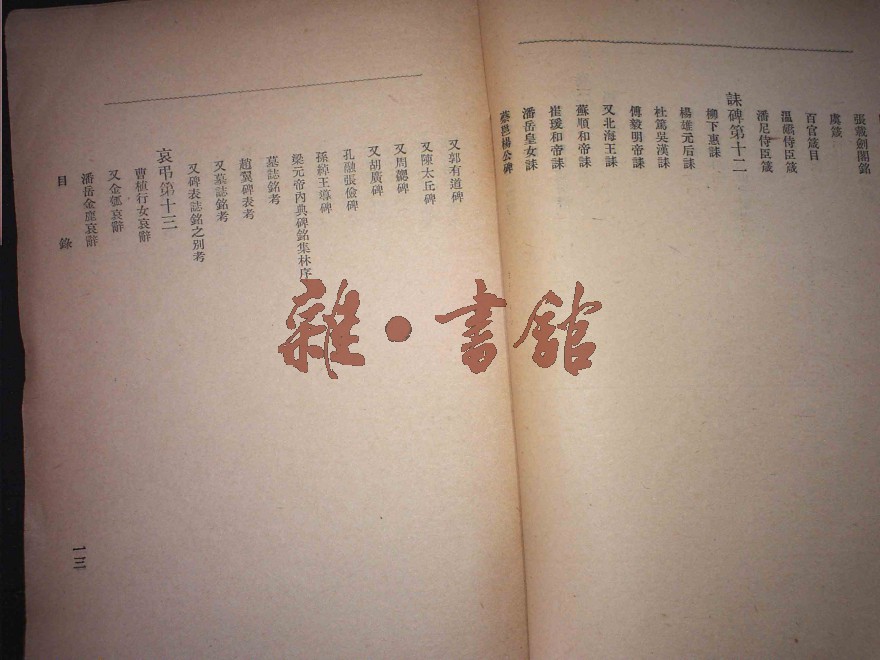 張載劍閣銘
虞箴
百官箴目
溫嶠侍臣箴
潘尼侍臣箴
誄碑第十二
柳下惠誄
楊雄元后誄
杜篤吳漢誄
傅毅明帝誄
又北海王誄
蘇順和帝誄
崔瑗和帝誄
潘岳皇女誄
蔡邕楊公碑
又郭有道碑
又陳太丘碑
又周勰碑
又胡廣碑
孔融張儉碑
孫綽王導碑
梁元帝內典碑銘集林序
墓誌銘考
趙翼碑表考
又墓誌銘考
又碑表誌銘之別考
哀弔第十三
曹植行女哀辭
又金瓠哀辭
潘岳金鹿哀辭
目錄
一三
雜·書館